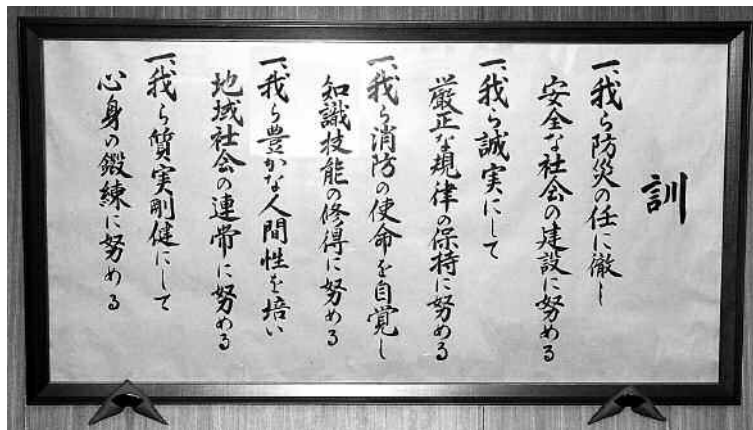 訓
一、我ら防災の任に徹し
安全な社会の建設に努める
一、我ら誠実にして
厳正な規律の保持に努める
一、我ら消防の使命を自覚し
知識技能の修得に努める
一、我ら豊かな人間性を培い
地域社会の連帯に努める
一、我ら質実剛健にして
心身の鍛練に努める